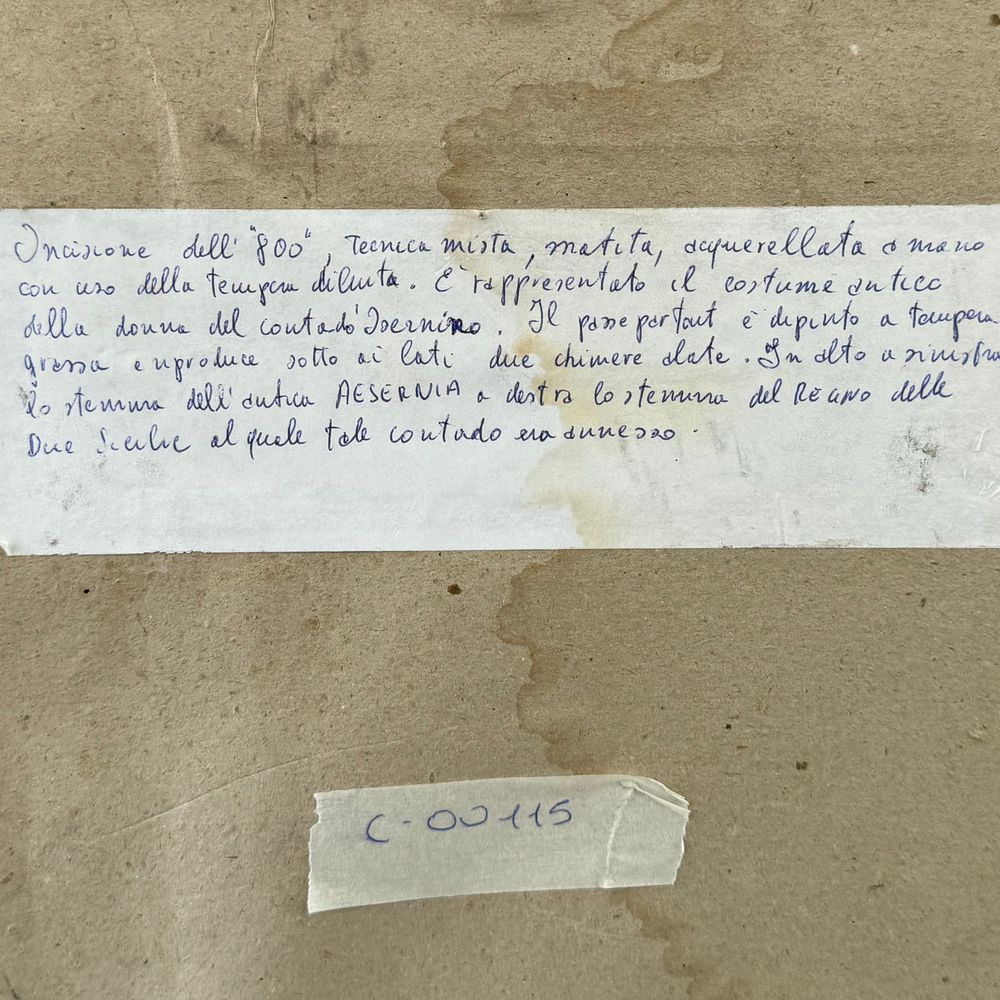 Incisione dell' "800", Tecnica mista, matita, acquerellata a mano
con uso della tempera diluita. E' rappresentato il costume antico
della donna del contado Isernino. Il passepartout è dipinto a tempera
grassa e riproduce sotto ai lati due chimere alate. In alto a sinistra
lo stemma dell'antica AESERNIA a destra lo stemma del Reame delle
Due Sicilie al quale tale contado era annesso.
C-00115